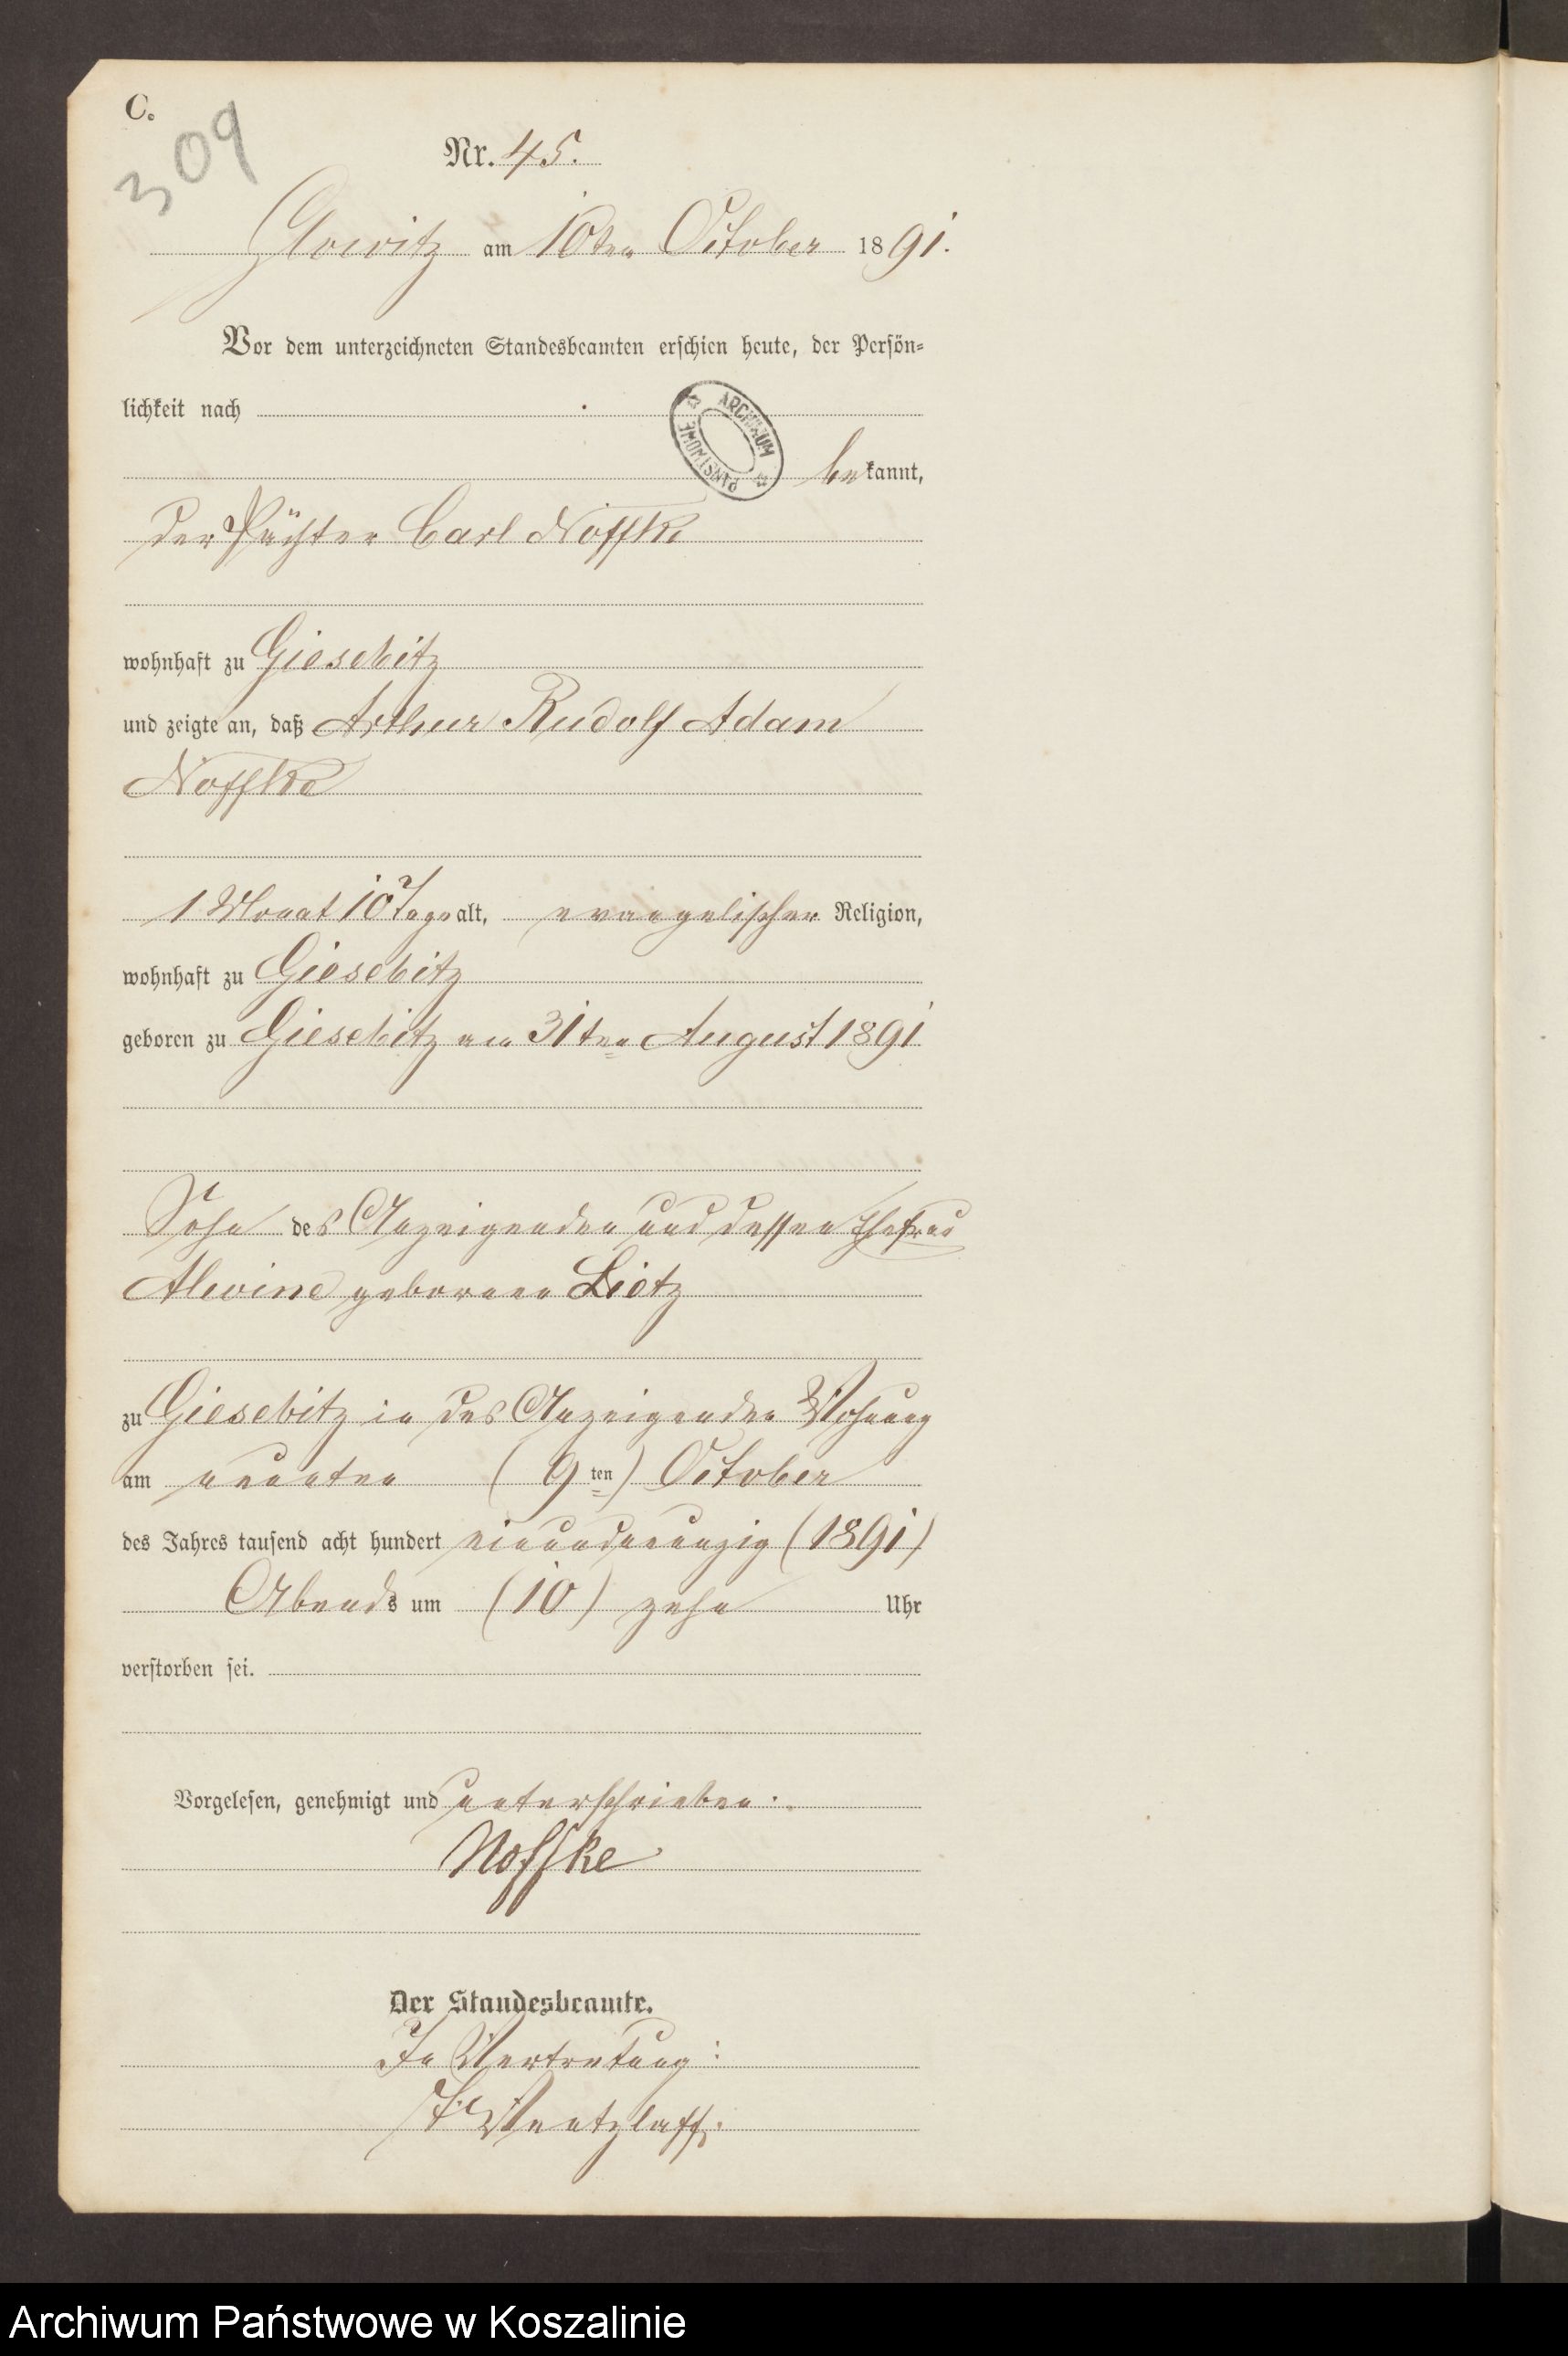 C.
309
Nr. 45.
Glowitz am 10ten October 1891.
Vor dem unterzeichneten Standesbeamten erschien heute, der Persön-
lichkeit nach
ARCHIWUM PAŃSTWOWE
bekannt,
der Pächter Carl Noffke
wohnhaft zu Giesebitz
und zeigte an, daß Arthur Rudolf Adam
Noffke
1 Monat 10 Tage alt, evangelischer Religion,
wohnhaft zu Giesebitz
geboren zu Giesebitz am 31ten August 1891
Sohn des Anzeigenden und dessen Ehefrau
Alwine geborenen Lietz
zu Giesebitz in des Anzeigenden Wohnung
am neunten (9ten) October
des Jahres tausend acht hundert einundneunzig (1891)
Abends um (10) zehn Uhr
verstorben sei.
Vorgelesen, genehmigt und unterschrieben.
Noffke
Der Standesbeamte.
In Vertretung:
Wentzlaff.
Archiwum Państwowe w Koszalinie